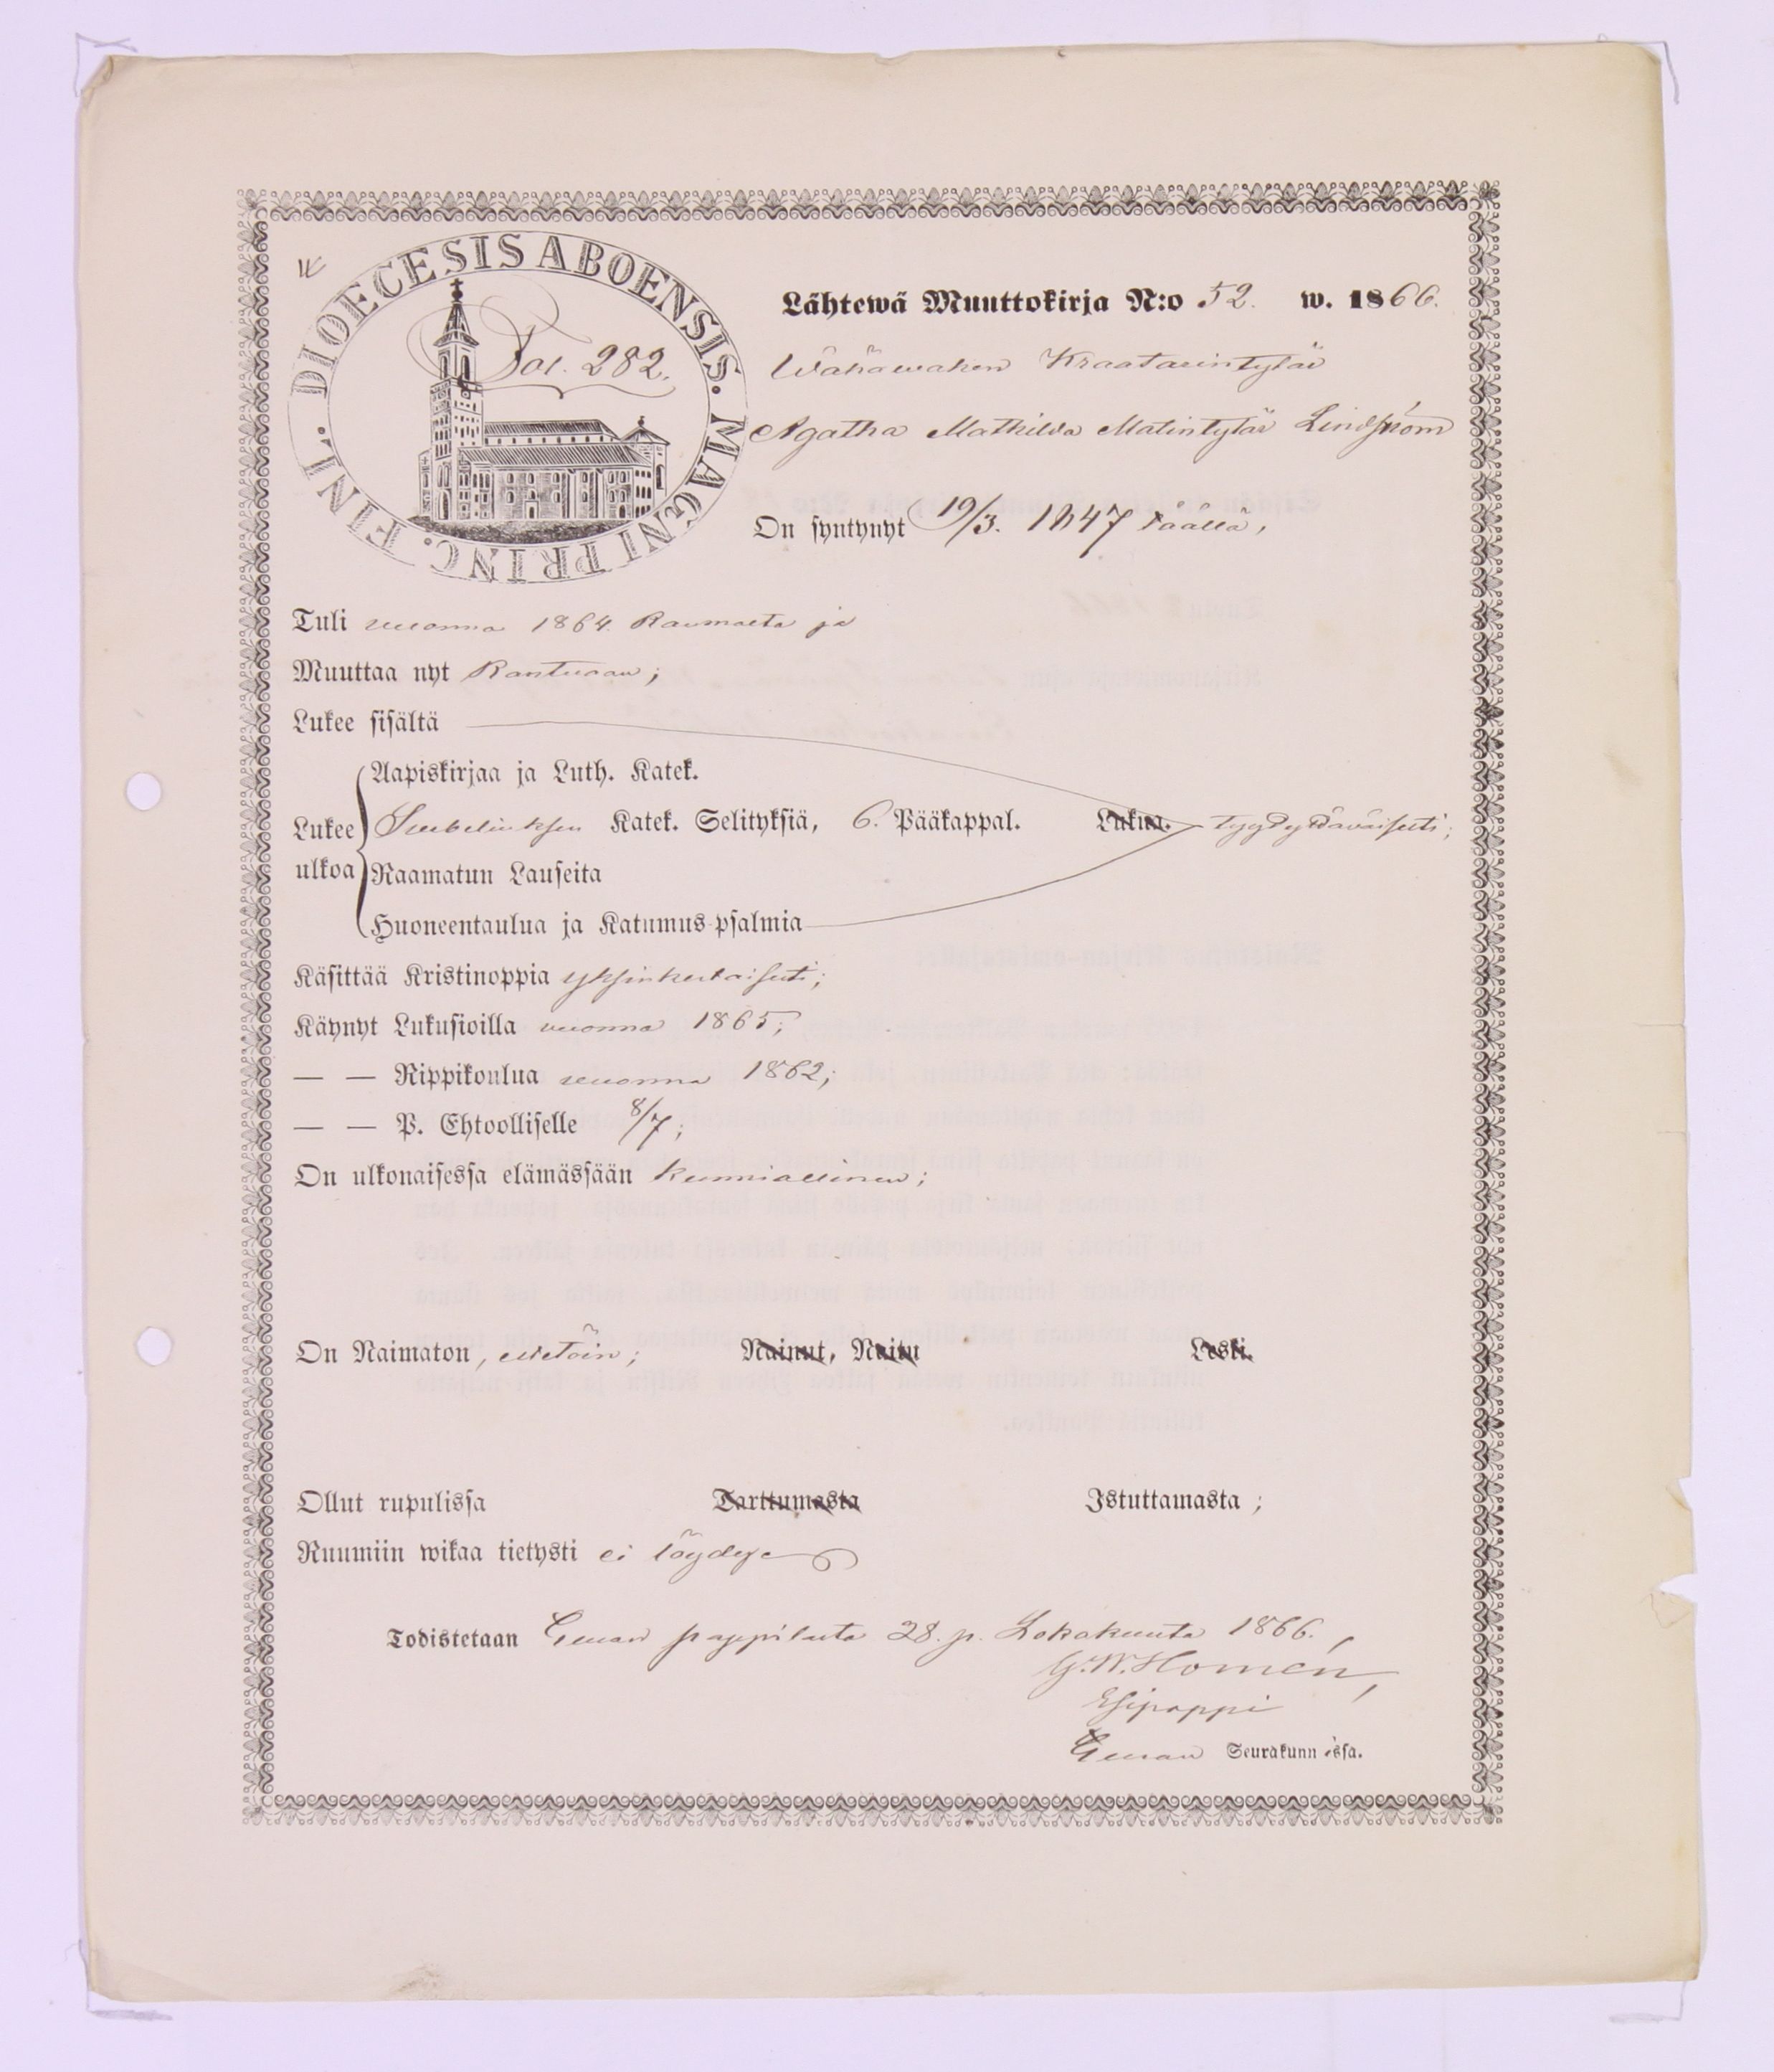 DIOECESIS ABOENSIS. MAGNI PRINC. FINL.
Fol. 282.
Lähtewä Muuttokirja N:o 52. w. 1866.
Wähäwahen Kraatarintytär
Agatha Mathilda Matintytär Lindström
On syntynyt 19/3. 1847 täällä,
Tuli wuonna 1864 Raumalta ja
Muuttaa nyt Rantuaan;
Lukee sisältä
Aapiskirjaa ja Luth. Katek.
Lukee Katek. Selityksiä, 6. Pääkappal. Lukua. tyydyttäwäisesti;
ulkoa Raamatun Lauseita
Huoneentaulua ja Katumus-psalmia
Käsittää Kristinoppia yksinkertaisesti;
Käynyt Lukusioilla wuonna 1865;
— — Rippikoulua wuonna 1862;
— — P. Ehtoolliselle 8/7;
On ulkonaisessa elämässään kunniallinen;
On Naimaton, estetöin; Nainut, Naitu Leski.
Ollut rupulissa Tarttumasta Istuttamasta;
Ruumiin wikaa tietysti ei löydy
Todistetaan Euran pappilasta 28. p. Lokakuuta 1866.
G. W. Homén,
Esipappi
Euran Seurakunnissa.